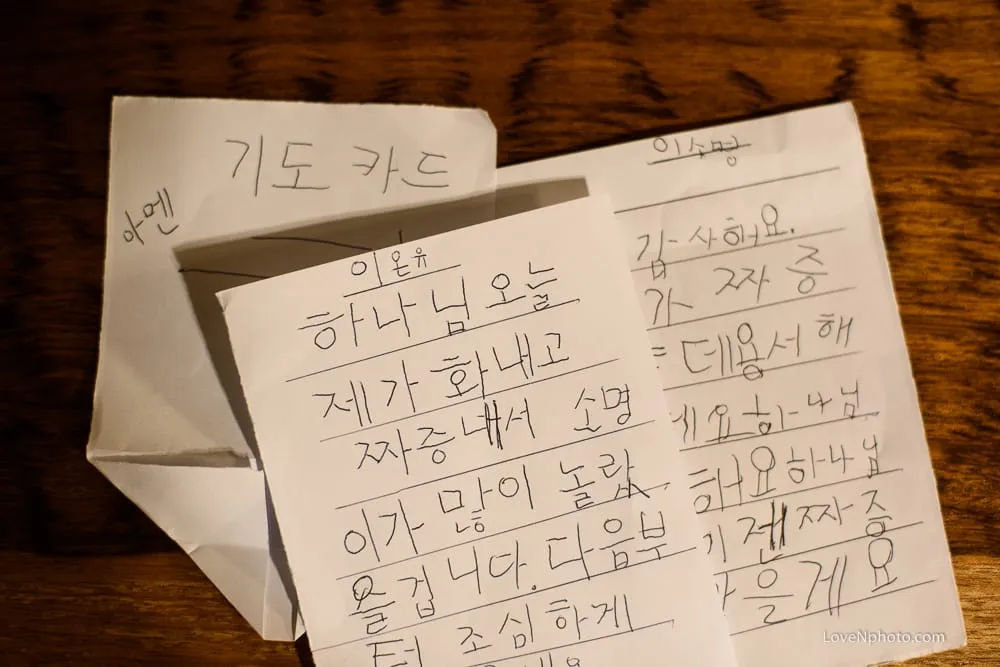 기도 카드
아멘
이온유
하나님 오늘
제가 화내고
짜증내서 소명
이가 많이 놀랐
을겁니다. 다음부
터 조심하게
이소명
감사해요.
가 짜증
데용서해
요하나님
해요하나님
짜증
을게요
LoveNphoto.com